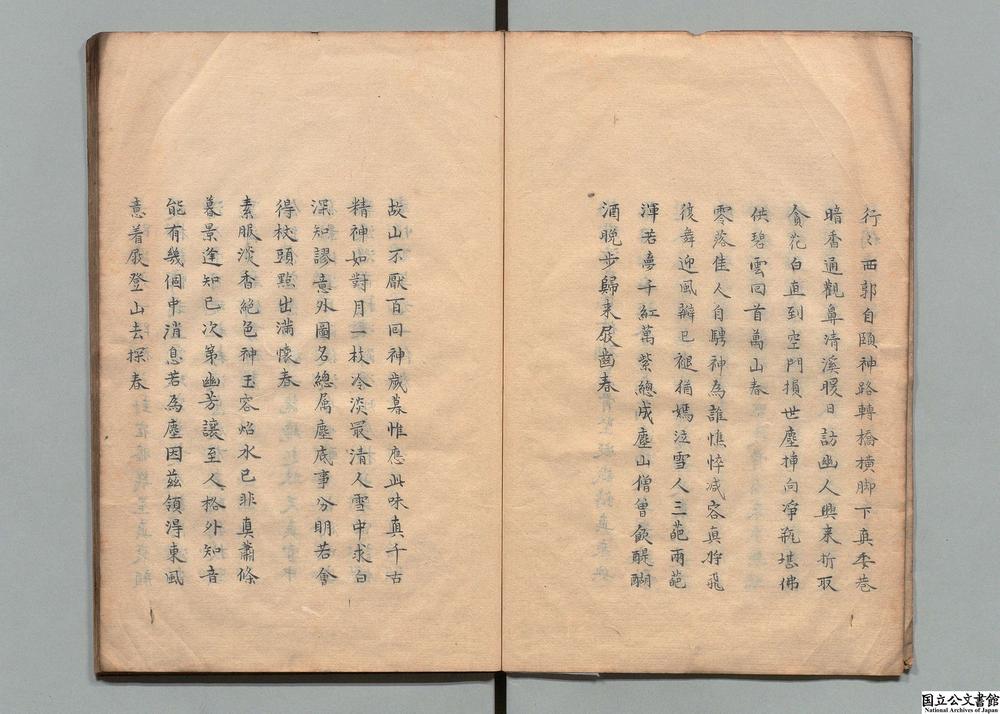 行々西郭自頤神路轉橋横脚下真委巷
暗香通觀鼻清溪暖日訪幽人興来折取
貪花白直到空門損世塵挿向淨瓶堪佛
供碧雲回首萬山春
零落佳人自騁神為誰憔悴减容真將飛
復舞迎風瓣已褪猶嫣泣雪人三葩兩葩
渾若夢千紅萬紫總成塵山僧曾飲醍醐
酒晩步歸来屐齒春
故山不厭百回神歲暮惟應此味真千古
精神如對月一枝冷淡最清人雪中求白
深知謬意外圖名總属塵底事分明若會
得杖頭點出滿懷春
素服淡香絶色神玉容焰水已非真蕭條
暮景逢知已次第幽芳讓至人格外知音
能有幾個中消息若為塵因茲領得東風
意着屐登山去探春
国立公文書館
National Archives of Japan